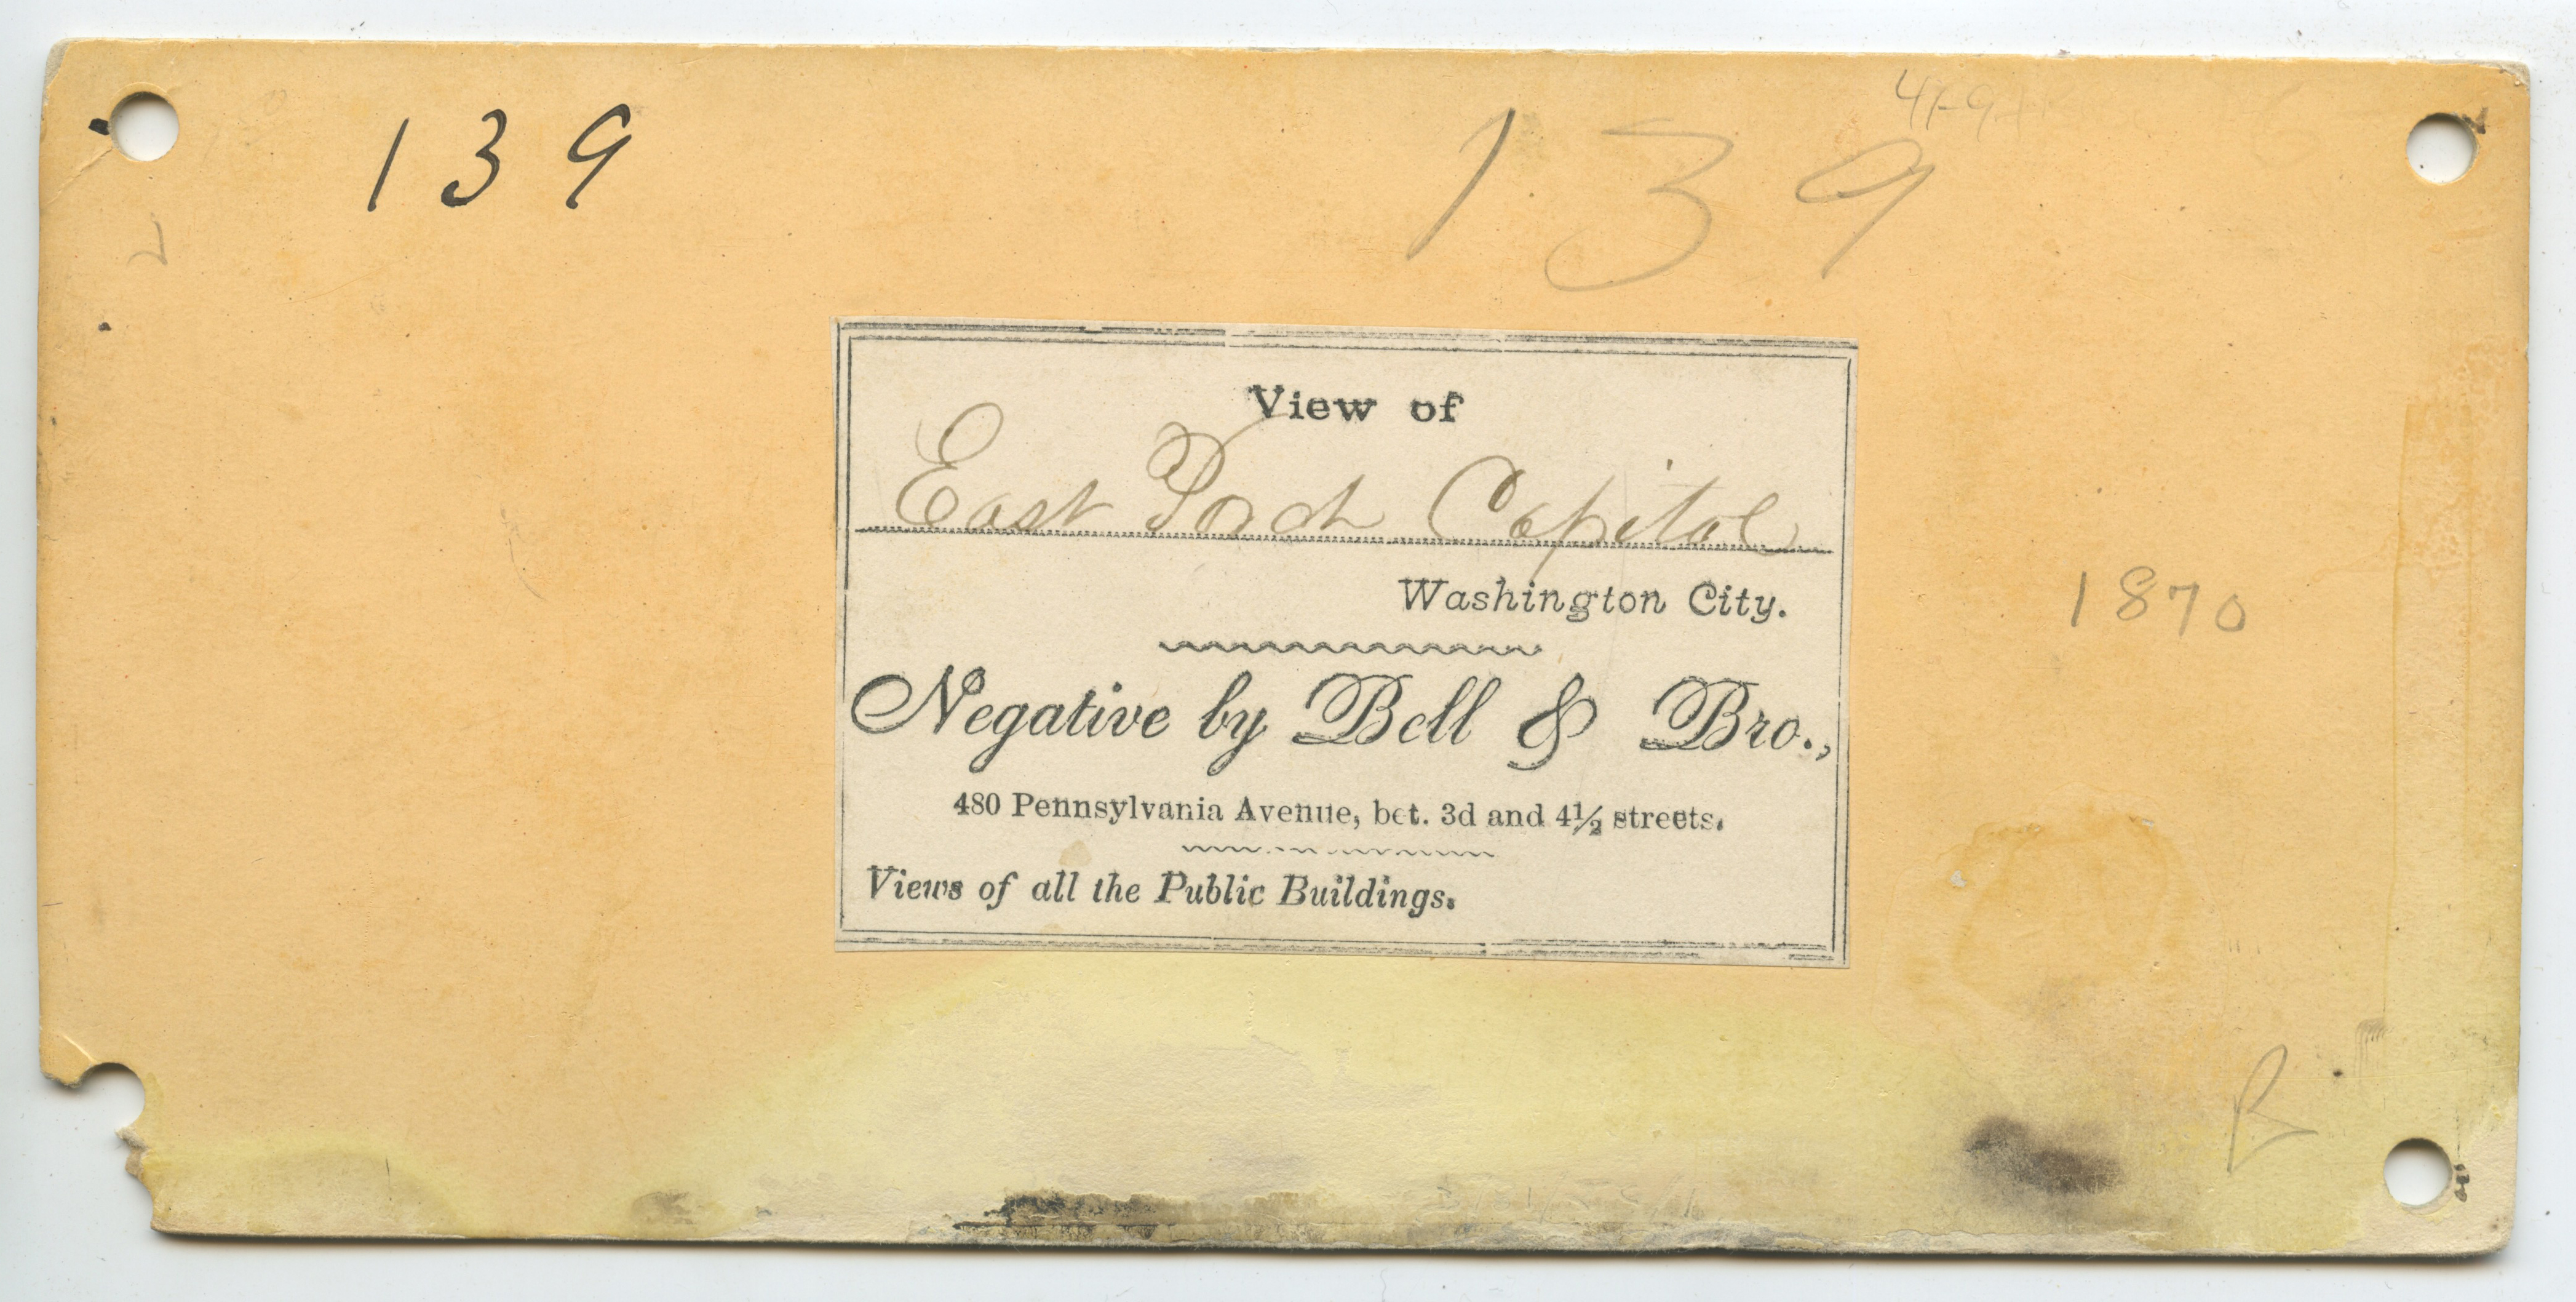 139
139
View of
East Porch Capitol
Washington City.
Negative by Bell & Bro.,
480 Pennsylvania Avenue, bet. 3d and 4½ streets.
Views of all the Public Buildings.
1870
B